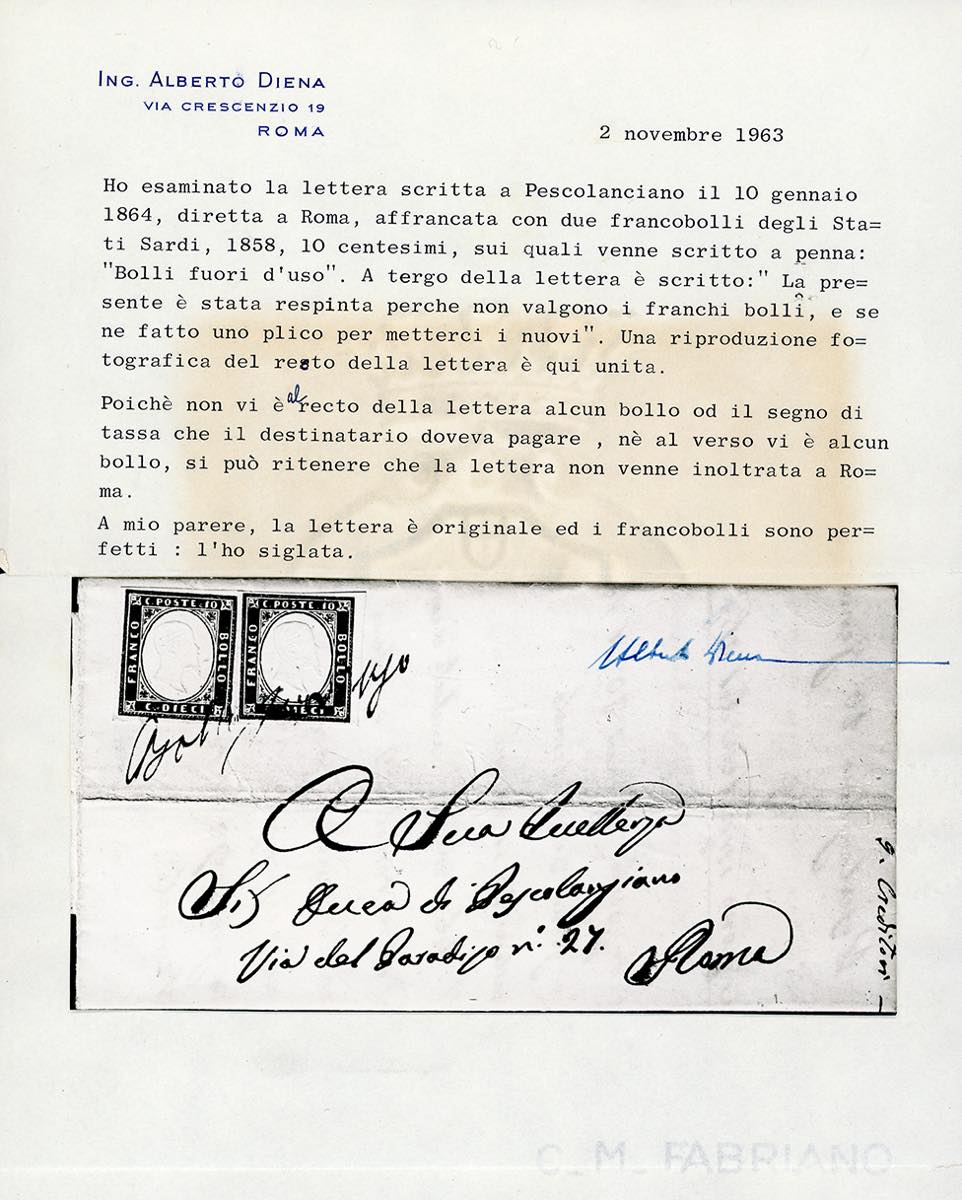 ING. ALBERTO DIENA
VIA CRESCENZIO 19
ROMA
2 novembre 1963
Ho esaminato la lettera scritta a Pescolanciano il 10 gennaio
1864, diretta a Roma, affrancata con due francobolli degli Sta=
ti Sardi, 1858, 10 centesimi, sui quali venne scritto a penna:
"Bolli fuori d'uso". A tergo della lettera è scritto:" La pre=
sente è stata respinta perche non valgono i franchi bolli, e se
ne fatto uno plico per metterci i nuovi". Una riproduzione fo=
tografica del resto della lettera è qui unita.
Poichè non vi è al recto della lettera alcun bollo od il segno di
tassa che il destinatario doveva pagare , nè al verso vi è alcun
bollo, si può ritenere che la lettera non venne inoltrata a Ro=
ma.
A mio parere, la lettera è originale ed i francobolli sono per=
fetti : l'ho siglata.
C. POSTE. 10
FRANCO
BOLLO
C. DIECI
C. POSTE. 10
FRANCO
BOLLO
C. DIECI
Alberto Diena
A Sua Eccellenza
Duca di Pescolanciano
Via del Paradiso n°. 27.
Roma
C. M. FABRIANO